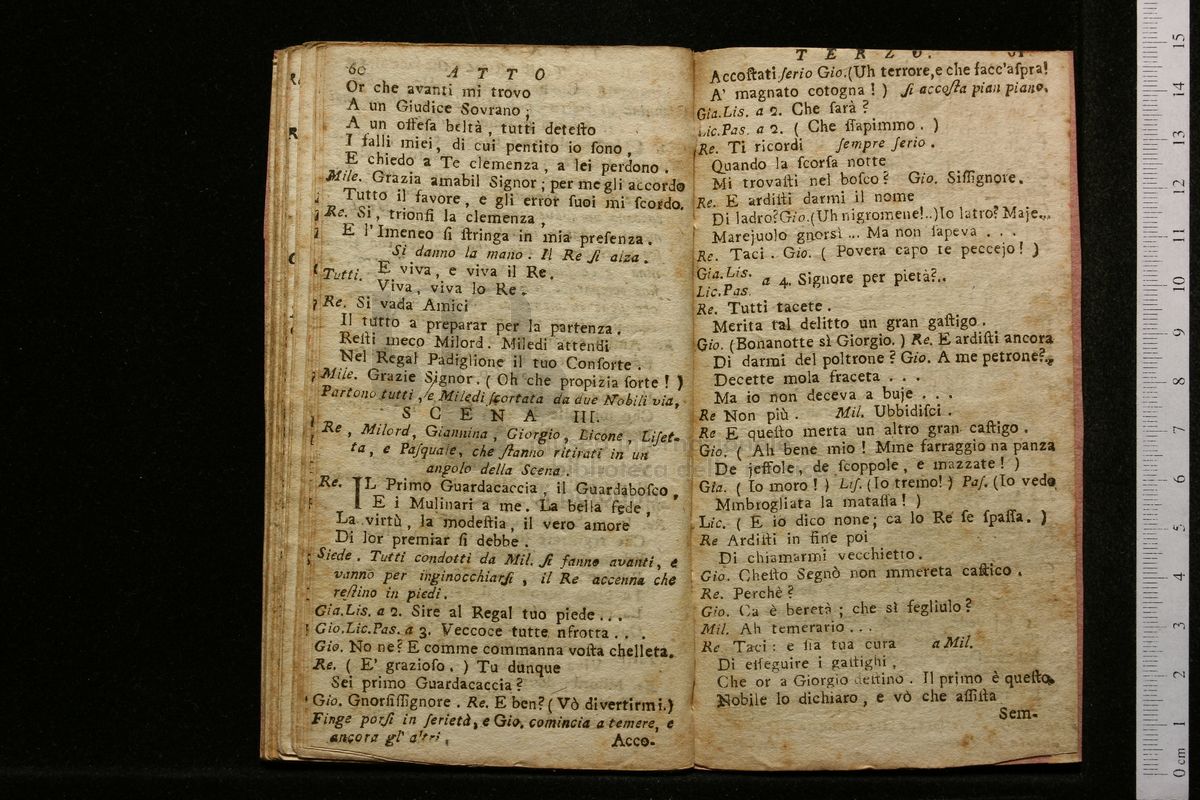 60 ATTO
Or che avanti mi trovo
A un Giudice Sovrano;
A un offesa beltà, tutti detesto
I falli miei, di cui pentito io sono,
E chiedo a Te clemenza, a lei perdono.
Mile. Grazia amabil Signor; per me gli accordo
Tutto il favore, e gli error suoi mi scordo.
Re. Si, trionfi la clemenza,
E l'Imeneo si stringa in mia presenza.
Si danno la mano. Il Re si alza.
Tutti. E viva, e viva il Re.
Viva, viva lo Re.
Re. Si vada Amici
Il tutto a preparar per la partenza.
Resti meco Milord. Miledi attendi
Nel Regal Padiglione il tuo Consorte.
Mile. Grazie Signor. (Oh che propizia sorte!)
Partono tutti, e Miledi scortata da due Nobili via.
SCENA III.
Re, Milord, Giannina, Giorgio, Licone, Liset-
ta, e Pasquale, che stanno ritirati in un
angolo della Scena.
Re. IL Primo Guardacaccia, il Guardabosco,
E i Mulinari a me. La bella fede,
La virtù, la modestia, il vero amore
Di lor premiar si debbe.
Siede. Tutti condotti da Mil. si fanno avanti, e
vanno per inginocchiarsi, il Re accenna che
restino in piedi.
Gia.Lis. a 2. Sire al Regal tuo piede...
Gio.Lic.Pas. a 3. Veccoce tutte nfrotta...
Gio. No ne? E comme commanna vosta chelleta.
Re. (E' grazioso.) Tu dunque
Sei primo Guardacaccia?
Gio. Gnorsissignore. Re. E ben? (Vò divertirmi.)
Finge porsi in serietà, e Gio. comincia a temere, e
ancora gl' altri.
Acco-
TERZO. 61
Accostati serio Gio. (Uh terrore, e che facc'aspra!
A' magnato cotogna!) si accosta pian piano.
Gia.Lis. a 2. Che sarà?
Lic.Pas. a 2. (Che ssapimmo.)
Re. Ti ricordi sempre serio.
Quando la scorsa notte
Mi trovasti nel bosco? Gio. Sissignore.
Re. E ardisti darmi il nome
Di ladro? Gio. (Uh nigromene!..) Io latro? Maje..
Marejuolo gnorsì... Ma non sapeva...
Re. Taci. Gio. (Povera capo te peccejo!)
Gia.Lis.
Lic.Pas. a 4. Signore per pietà?..
Re. Tutti tacete.
Merita tal delitto un gran gastigo.
Gio. (Bonanotte sì Giorgio.) Re. E ardisti ancora
Di darmi del poltrone? Gio. A me petrone?..
Decette mola fraceta...
Ma io non deceva a buje...
Re Non più. Mil. Ubbidisci.
Re E questo merta un altro gran castigo.
Gio. (Ah bene mio! Mme farraggio na panza
De jeffole, de scoppole, e mazzate!)
Gia. (Io moro!) Lis. (Io tremo!) Pas. (Io vedo
Mmbrogliata la matassa!)
Lic. (E io dico none; ca lo Re se spassa.)
Re Ardisti in fine poi
Di chiamarmi vecchietto.
Gio. Chesto Segnò non mmereta castico.
Re. Perchè?
Gio. Ca è beretà; che sì fegliulo?
Mil. Ah temerario...
Re Taci: e sia tua cura a Mil.
Di esseguire i gastighi,
Che or a Giorgio destino. Il primo è questo.
Nobile lo dichiaro, e vò che assista
Sem-
0 cm 1 2 3 4 5 6 7 8 9 10 11 12 13 14 15